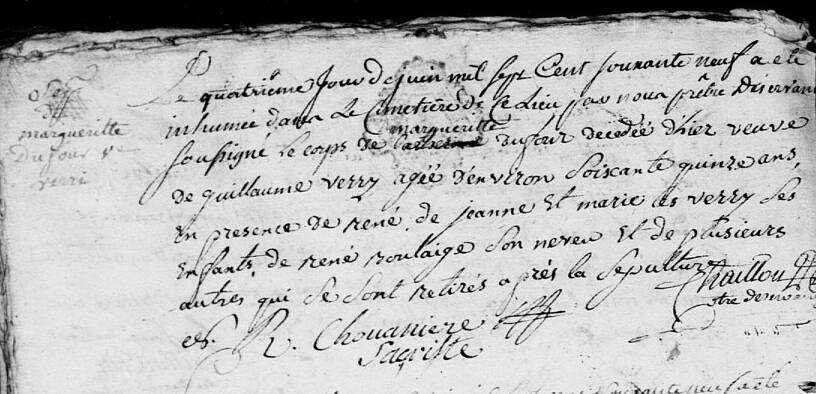 Sep
margueritte
Dufour ve
verri
Le quatrième Jour de juin mil sept Cent soixante neuf a eté
inhumée dans Le Cimetière de Ce Lieu par nous prêtre Déservant
soussigné le corps de margueritte Dufour decedée d'hier veuve
de guillaume verry agée d'environ Soixante quinze ans,
En presence de René, de jeanne Et marie les verry ses
Enfants, de René Roulaige Son neveu Et de plusieurs
autres qui se sont retirés après la sepulture
R. Chouaniere
Sacriste
Chaillou
ptre deservant